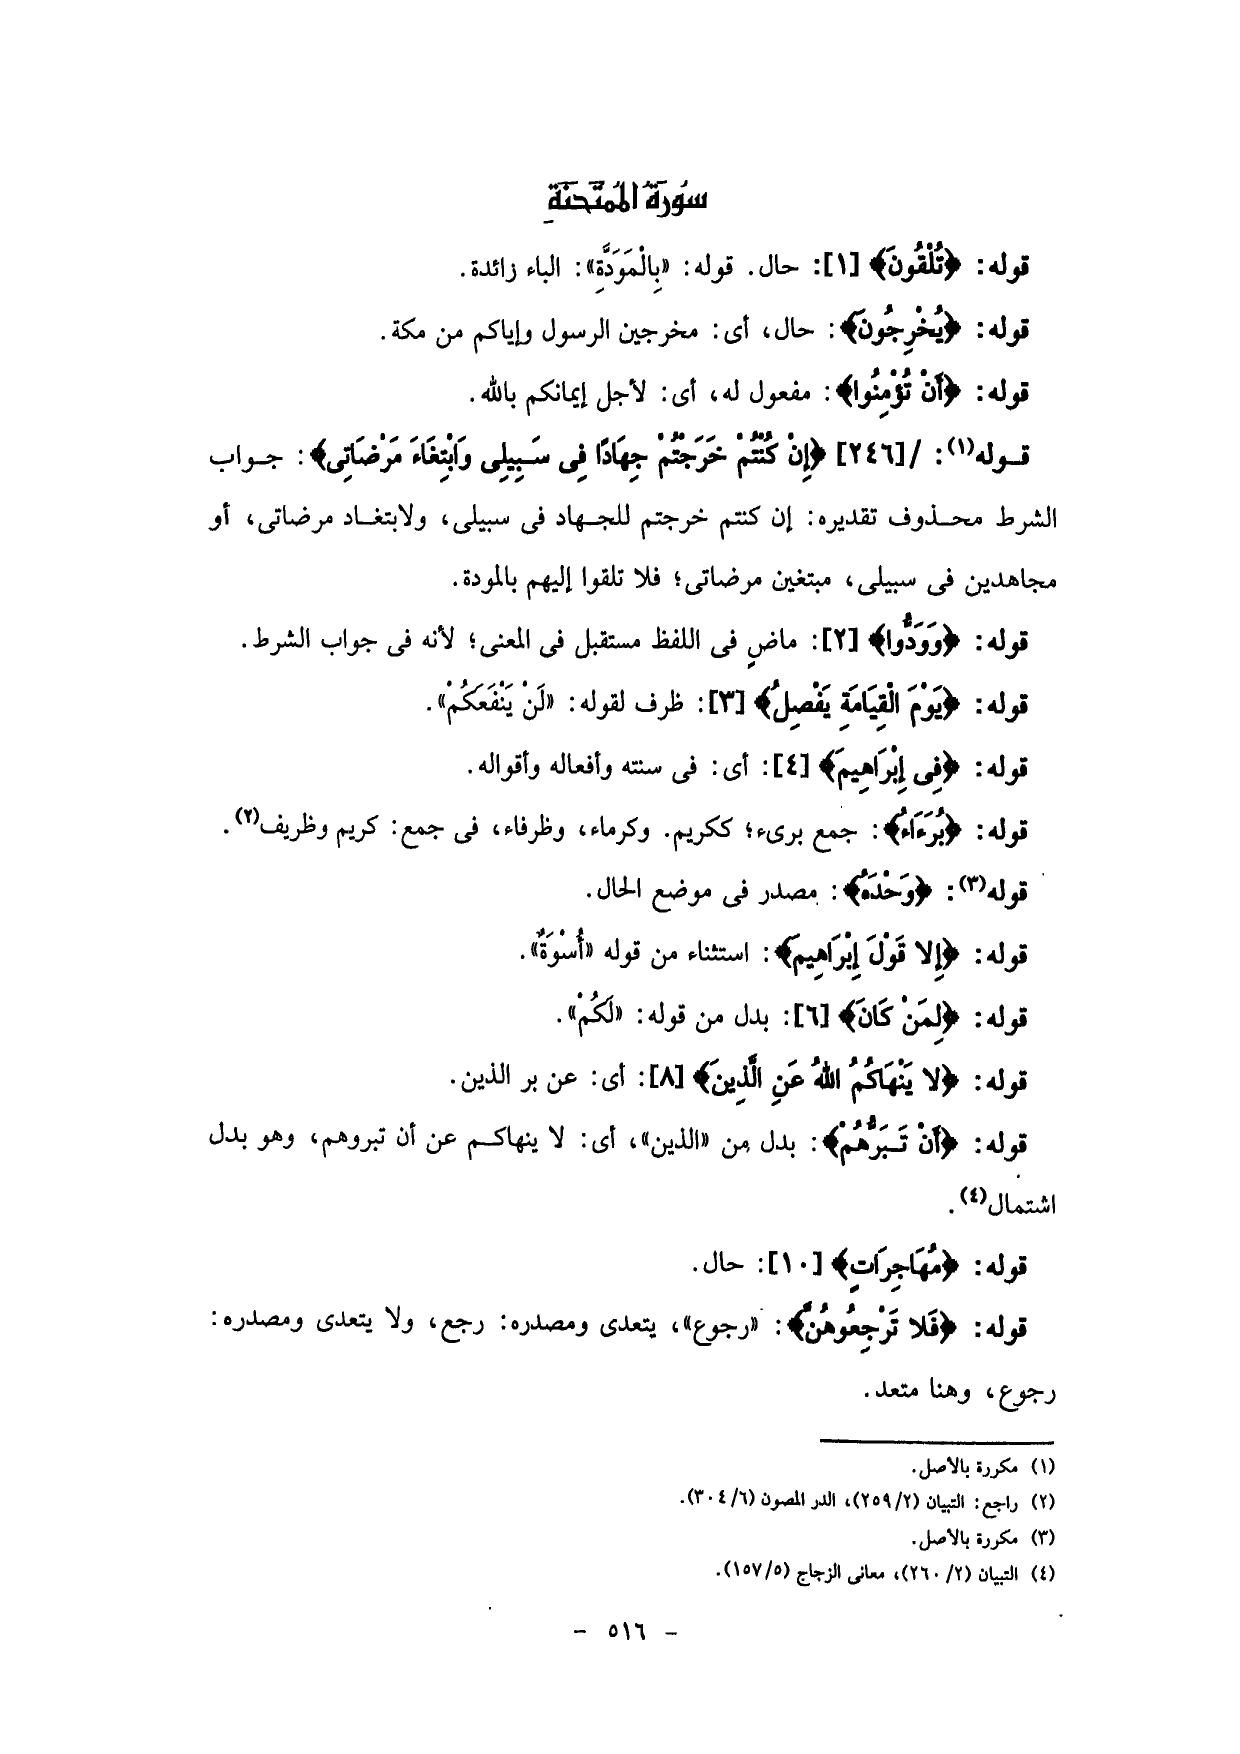 سُورَةُ المُمْتَحَنَةِ
قوله: ﴿تُلْقُونَ﴾ [١]: حال. قوله: «بِالْمَوَدَّةِ»: الباء زائدة.
قوله: ﴿يُخْرِجُونَ﴾: حال، أى: مخرجين الرسول وإياكم من مكة.
قوله: ﴿أَنْ تُؤْمِنُوا﴾: مفعول له، أى: لأجل إيمانكم بالله.
قــوله(١): /[٢٤٦] ﴿إِنْ كُنْتُمْ خَرَجْتُمْ جِهَادًا فِى سَبِيلِى وَابْتِغَاءَ مَرْضَاتِى﴾: جــواب
الشرط محــذوف تقديره: إن كنتم خرجتم للجـهاد فى سبيلى، ولابتغـاد مرضاتى، أو
مجاهدين فى سبيلى، مبتغين مرضاتى؛ فلا تلقوا إليهم بالمودة.
قوله: ﴿وَوَدُّوا﴾ [٢]: ماضٍ فى اللفظ مستقبل فى المعنى؛ لأنه فى جواب الشرط.
قوله: ﴿يَوْمَ الْقِيَامَةِ يَفْصِلُ﴾ [٣]: ظرف لقوله: «لَنْ يَنْفَعَكُمْ».
قوله: ﴿فِى إِبْرَاهِيمَ﴾ [٤]: أى: فى سنته وأفعاله وأقواله.
قوله: ﴿بُرَءَاءُ﴾: جمع برىء؛ ككريم. وكرماء، وظرفاء، فى جمع: كريم وظريف(٢).
قوله(٣): ﴿وَحْدَهُ﴾: مصدر فى موضع الحال.
قوله: ﴿إِلا قَوْلَ إِبْرَاهِيمَ﴾: استثناء من قوله «أُسْوَةٌ».
قوله: ﴿لِمَنْ كَانَ﴾ [٦]: بدل من قوله: «لَكُمْ».
قوله: ﴿لا يَنْهَاكُمُ اللهُ عَنِ الَّذِينَ﴾ [٨]: أى: عن بر الذين.
قوله: ﴿أَنْ تَـبَرُّهُمْ﴾: بدل من «الذين»، أى: لا ينهاكــم عن أن تبروهم، وهو بدل
اشتمال(٤).
قوله: ﴿مُهَاجِرَاتٍ﴾ [١٠]: حال.
قوله: ﴿فَلا تَرْجِعُوهُنَّ﴾: «رجوع»، يتعدى ومصدره: رجع، ولا يتعدى ومصدره:
رجوع، وهنا متعد.
(١) مكررة بالأصل.
(٢) راجع: التبيان (٢٥٩/٢)، الدر المصون (٣٠٤/٦).
(٣) مكررة بالأصل.
(٤) التبيان (٢٦٠/٢)، معانى الزجاج (١٥٧/٥).
- ٥١٦ -